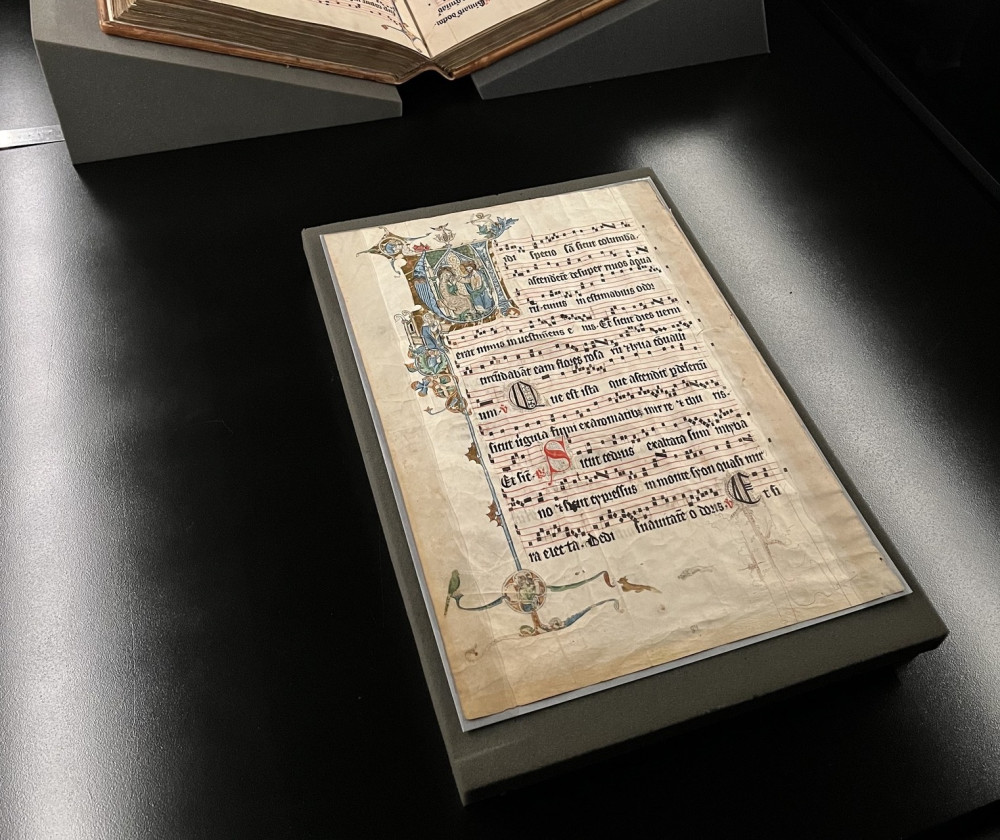 idi speciosā sicut columbā
ascendētē desuper riuos aqua
rū cuius inestimabilis odor
erat nimis in uestimētis eius. Et sicut dies uerni
circūdabāt eam flores rosarū ⁊ lylia cōualli
um. ℣ Que est ista que ascendit p desertū
sicut uirgula fumi ex aromatib; mirre ⁊ thuris.
Et sic̄. ℣ Sicut cedrus exaltata sum in lyba
no ⁊ sicut cypressus in monte syon quasi mir
ra electa. Dedi suauitatē odoris. ℣ Et si